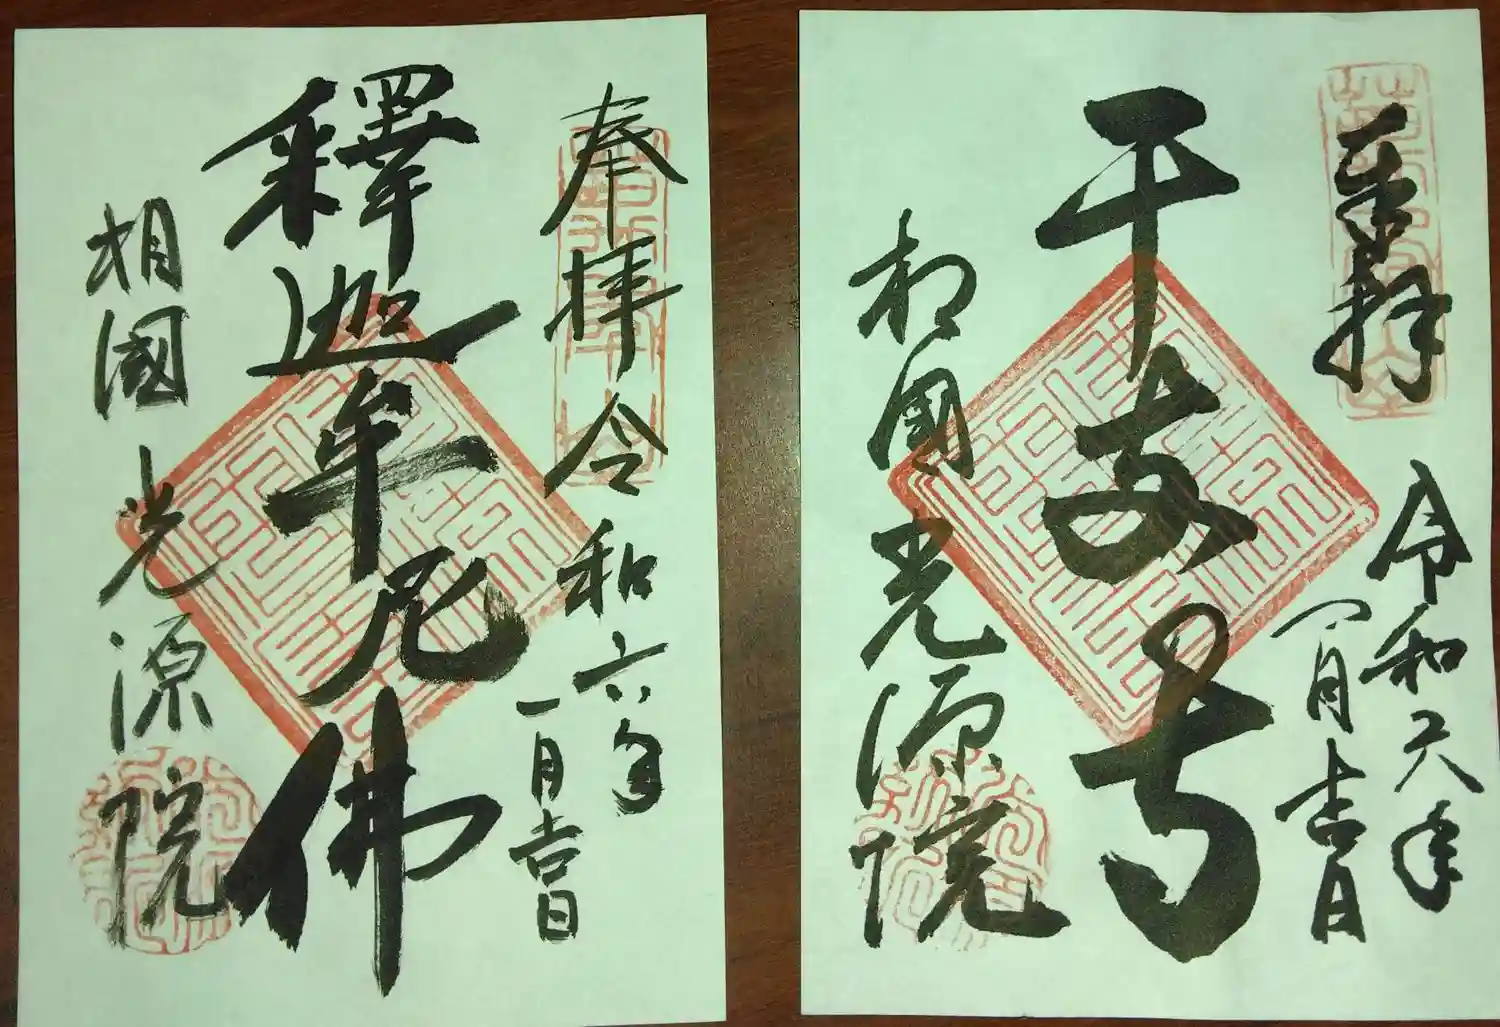 奉拝
令和六年
一月吉日
干支寺
相國光源院
奉拝 令和六年
一月吉日
釋迦牟尼佛
相國光源院